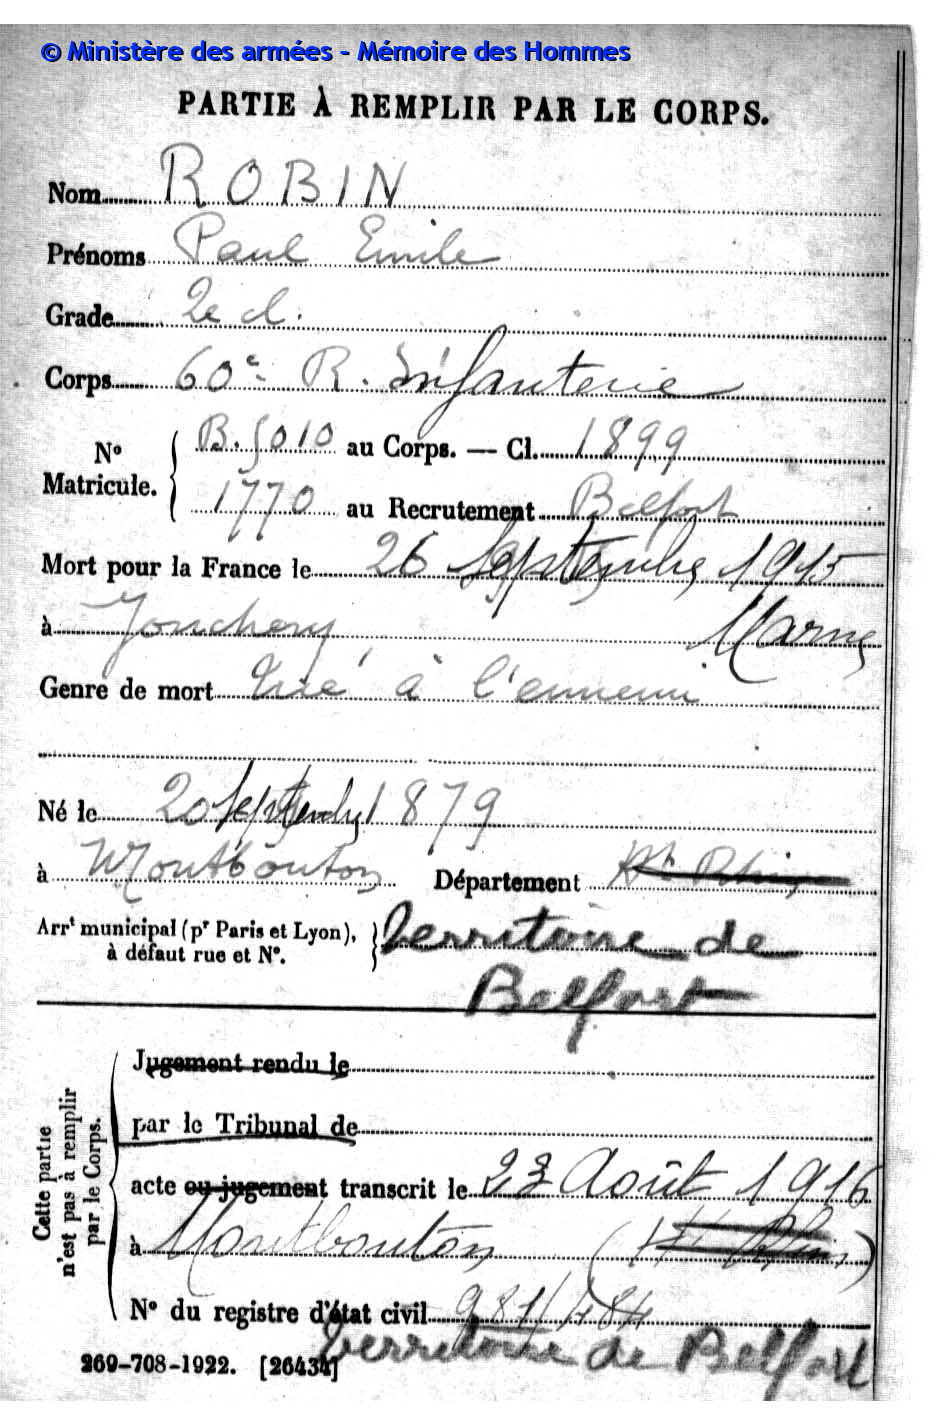 © Ministère des armées - Mémoire des Hommes
PARTIE À REMPLIR PAR LE CORPS.
Nom ROBIN
Prénoms Paul Emile
Grade 2e cl.
Corps 60e R. Infanterie
N° Matricule. { B.5010 au Corps. — Cl. 1899
1770 au Recrutement Belfort
Mort pour la France le 26 Septembre 1915
à Jonchery, Marne
Genre de mort Tué à l'ennemi
Né le 20 Septembre 1879
à Montbouton Département Ht Rhin
Arrt municipal (pr Paris et Lyon), à défaut rue et N°. } Territoire de
Belfort
Cette partie n'est pas à remplir par le Corps.
Jugement rendu le
par le Tribunal de
acte ou jugement transcrit le 23 Août 1916
à Montbouton (Ht Rhin)
N° du registre d'état civil 981/484
Territoire de Belfort
269-708-1922. [26434]